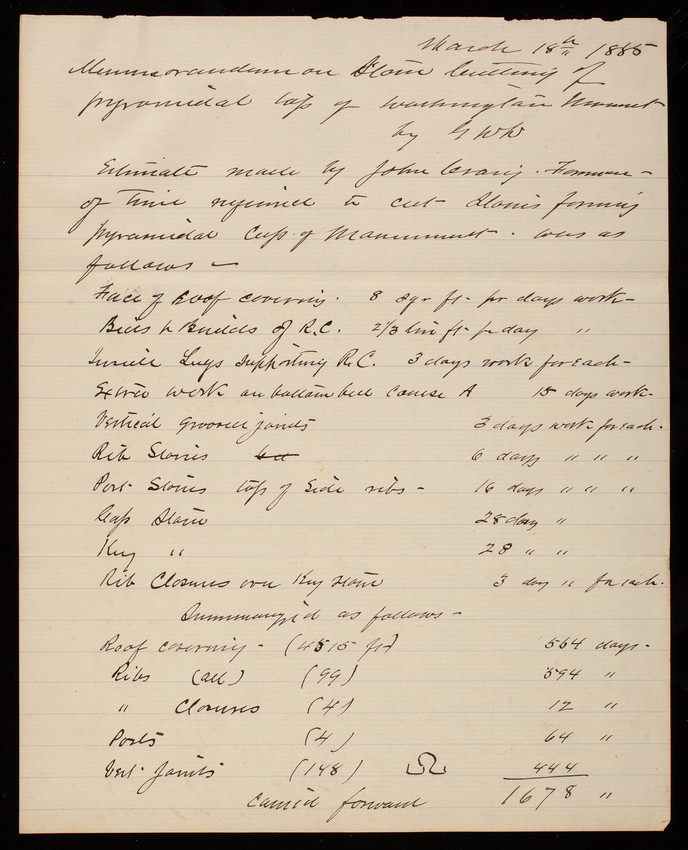 March 18th 1885
Memorandum on Stone Cutting of
pyramidal top of Washington Monument
by GWW
Estimate made by John Craig. Foreman -
of time required to cut Stones forming
pyramidal Cap of Monument. was as
follows -
Face of Roof covering. 8 sqr ft. pr days work -
Beds & Builds of R.C. 2 1/3 lin ft. pr day "
Inside Lugs supporting R.C. 3 days work for each -
Extra work on bottom bed course A 15 days work -
Vertical grooved joints 3 days work for each.
Rib Stones 6 days " " "
Post Stones top of Side ribs - 16 days " " "
Cap Stone 28 days "
Key " 28 " "
Rib Closures over Key stone 3 day " for each.
Summarized as follows -
Roof covering - (4515 ft) 564 days -
Ribs (all) (99) 594 "
" Closures (4) 12 "
Posts (4) 64 "
Vert. Joints (148) 444
Carried forward 1678 "